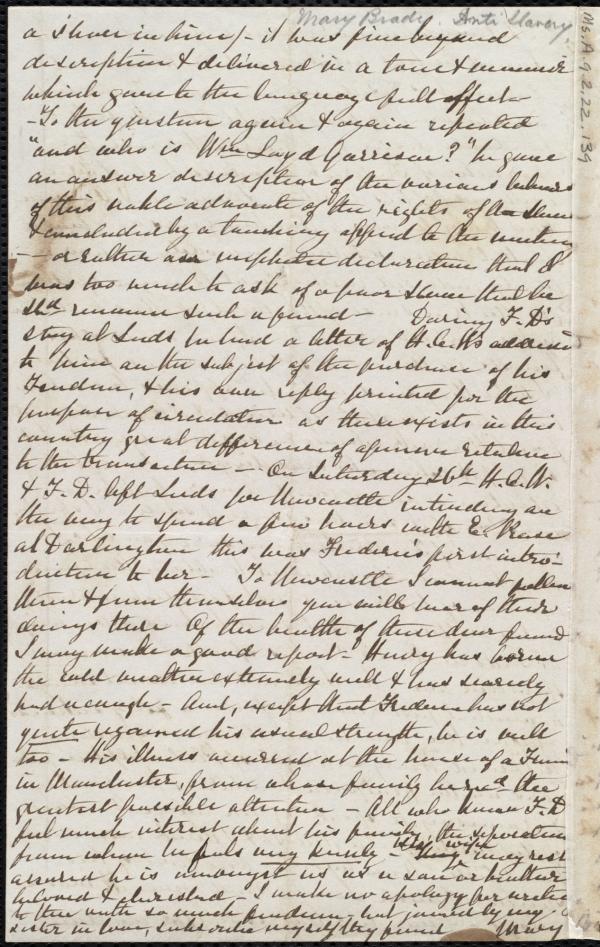 Mary Brady. Anti Slavery.
Ms. A. 9. 2. 22. 139
a slave in him) - it was fine beyond
description & delivered in a tone & manner
which gave to the language full effect -
- To the question again & again repeated
"and who is Wm Loyd Garrison?" he gave
an answer descriptive of the various labours
of this noble advocate of the rights of the slave
& concluded by a touching appeal to the meeting
- or rather an emphatic declaration that it
was too much to ask of a poor slave that he
shd renounce such a friend - During F. D's
stay at Leeds, he had a letter of H. C. W's address'd
to him on the subject of the purchase of his
Freedom, & his own reply printed for the
purpose of circulation as there exists in this
country great difference of opinion relative
to the transaction - On Saturday 26th H. C. W.
& F. D. left Leeds for Newcastle intending on
the way to spend a few hours with E. Pease
at Darlington this was Frederic's first intro-
duction to her - To Newcastle I cannot follow
them & from themselves you will hear of their
doings there Of the health of these dear friends
I may make a good report - Henry has borne
the cold weather extremely well & has scarcely
had a cough - And, except that Frederic has not
quite regained his usual strength, he is well
too - His illness occurred at the house of a Friend
in Manchester, from whose family he recd. the
greatest possible attention - All who know F. D
feel much interest about his family, the separation
from whom he feels very keenly - His wife may rest
assured he is amongst us as a son or brother
beloved & cherished - I make no apology for writing
to thee with so much freedom, but joined by my
sister in love, subscribe myself thy friend Mary